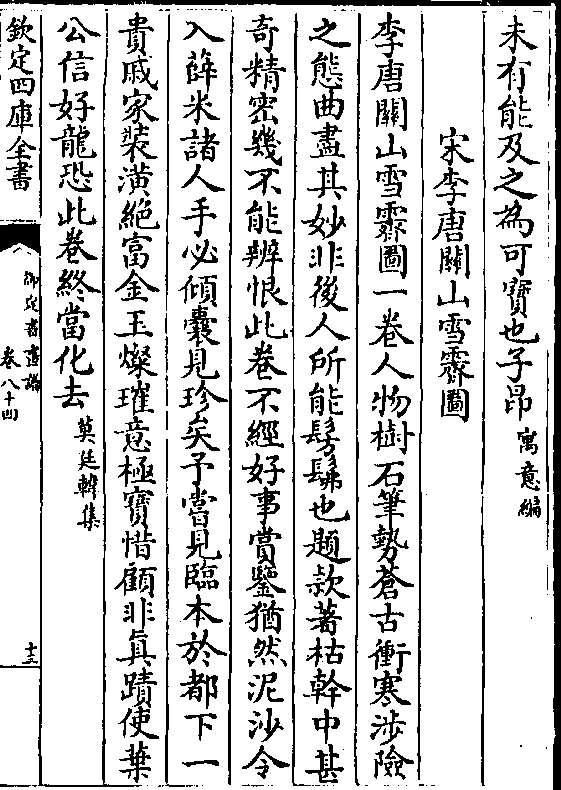 未有能及之為可寳也子昂寓意編
宋李唐關山雪霽圖
李唐關山雪霽圖一卷人物樹石筆勢蒼古衝寒涉險
之態曲盡其妙非後人所能髣髴也題款著枯幹中甚
奇精密幾不能辨恨此卷不經好事賞鑒猶然泥沙令
入薛米諸人手必傾囊見珍矣予嘗見臨本於都下一
貴戚家裝潢絶富金玉燦璀意極寳惜顧非真蹟使葉
公信好龍恐此卷終當化去莫廷韓集
欽定四庫全書
御定書畫譜
卷八十四
十三